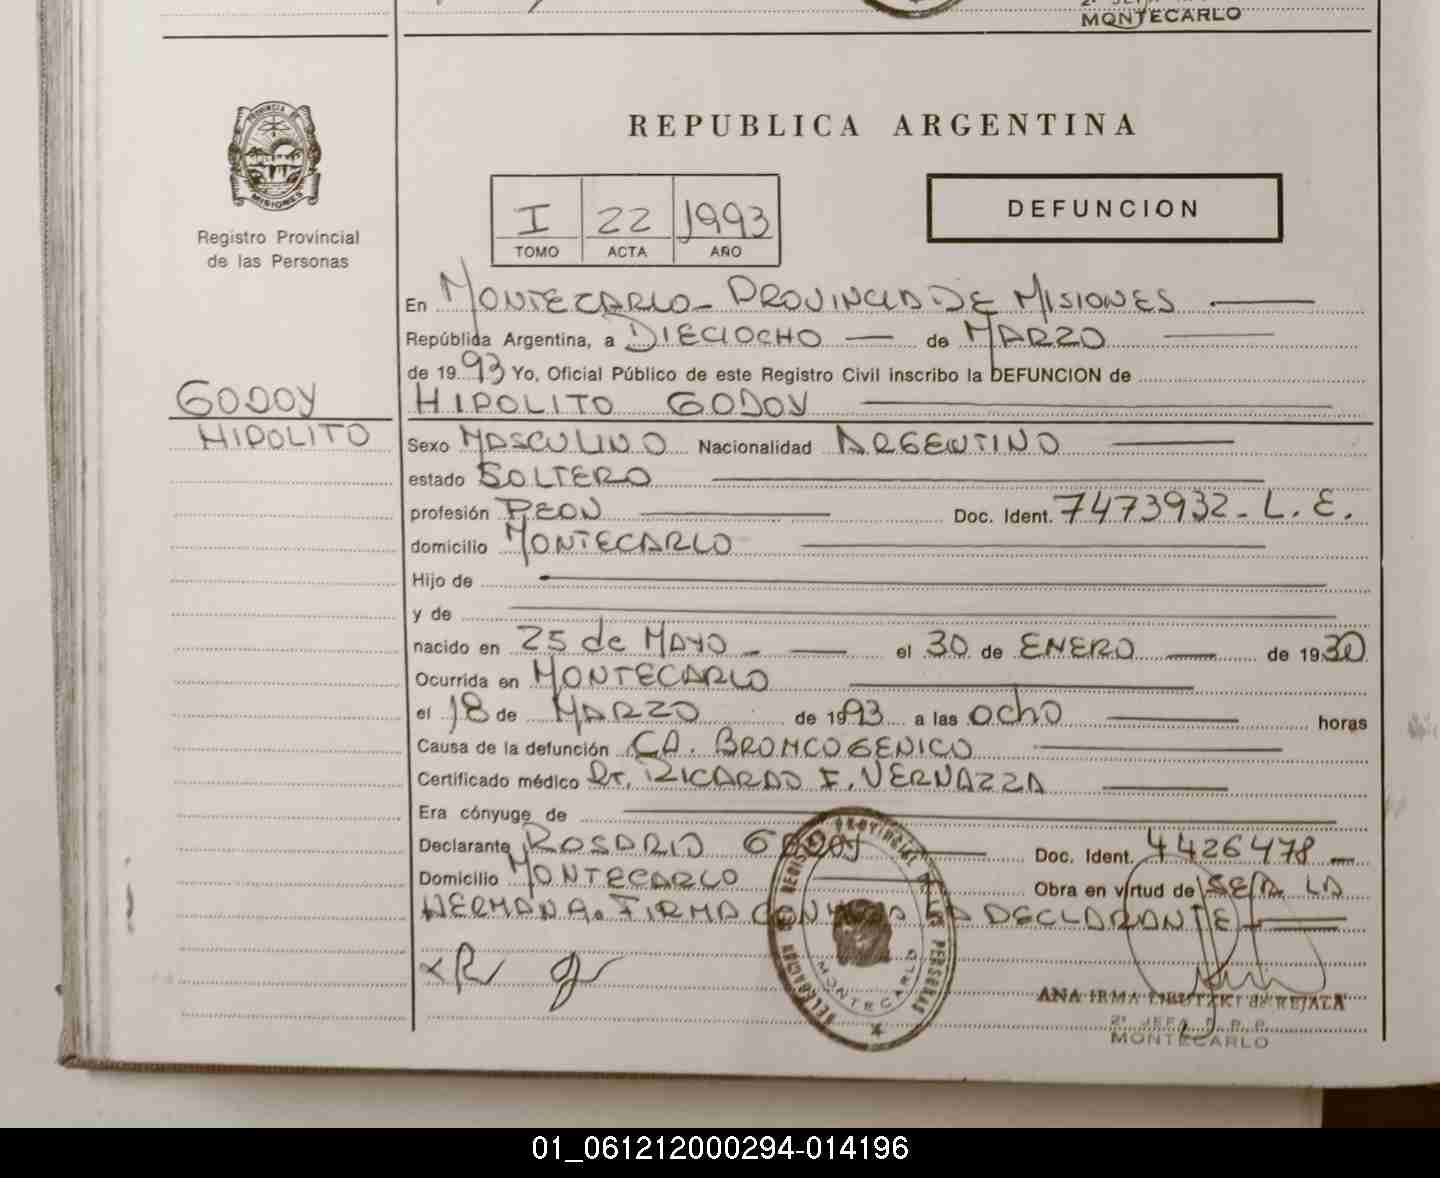 MONTECARLO
REPUBLICA ARGENTINA
PROVINCIA DE MISIONES
Registro Provincial
de las Personas
I 22 1993
TOMO ACTA AÑO
DEFUNCION
En MONTECARLO - PROVINCIA DE MISIONES
República Argentina, a DIECIOCHO de MARZO
de 1993 Yo, Oficial Público de este Registro Civil inscribo la DEFUNCION de
GODOY
HIPOLITO
HIPOLITO GODOY
Sexo MASCULINO Nacionalidad ARGENTINO
estado SOLTERO
profesión PEON Doc. Ident. 7473932 - L. E.
domicilio MONTECARLO
Hijo de
y de
nacido en 25 de MAYO - el 30 de ENERO de 1930
Ocurrida en MONTECARLO
el 18 de MARZO de 1993 a las ocho horas
Causa de la defunción CA. BRONCOGENICO
Certificado médico Dr. RICARDO F. VERNAZZA
Era cónyuge de
Declarante ROSARIO GODOY Doc. Ident. 4426478
Domicilio MONTECARLO Obra en virtud de SER LA
HERMANA. FIRMA CONMIGO LA DECLARANTE
DELEGACION DE REGISTRO PROVINCIAL DE LAS PERSONAS
MONTECARLO
ANA IRMA DE REJALA
2ª JEFA R. P. P.
MONTECARLO
01_061212000294-014196